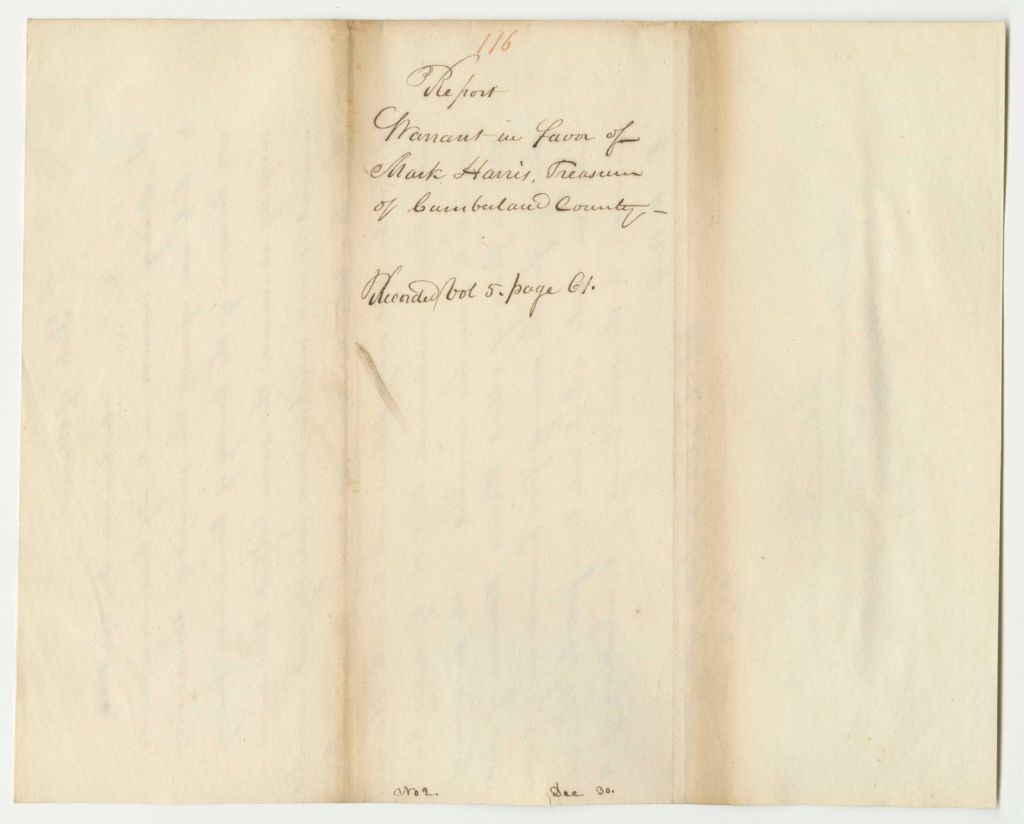 116
Report
Warrant in favor of
Mark Harris, Treasurer
of Cumberland County –
Recorded Vol 5. page 61.
No 2. Dec 30.